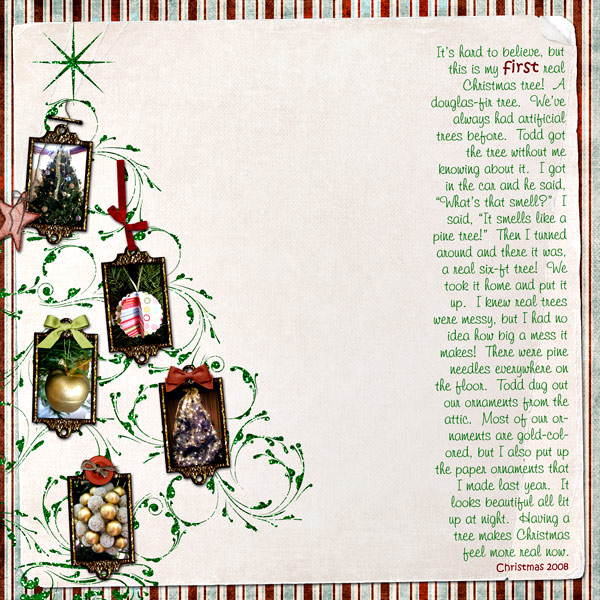 It's hard to believe, but
this is my first real
Christmas tree! A
douglas-fir tree. We've
always had artificial
trees before. Todd got
the tree without me
knowing about it. I got
in the car and he said,
"What's that smell?" I
said, "It smells like a
pine tree!" Then I turned
around and there it was,
a real six-ft tree! We
took it home and put it
up. I knew real trees
were messy, but I had no
idea how big a mess it
makes! There were pine
needles everywhere on
the floor. Todd dug out
our ornaments from the
attic. Most of our or-
naments are gold-col-
ored, but I also put up
the paper ornaments that
I made last year. It
looks beautiful all lit
up at night. Having a
tree makes Christmas
feel more real now.
Christmas 2008